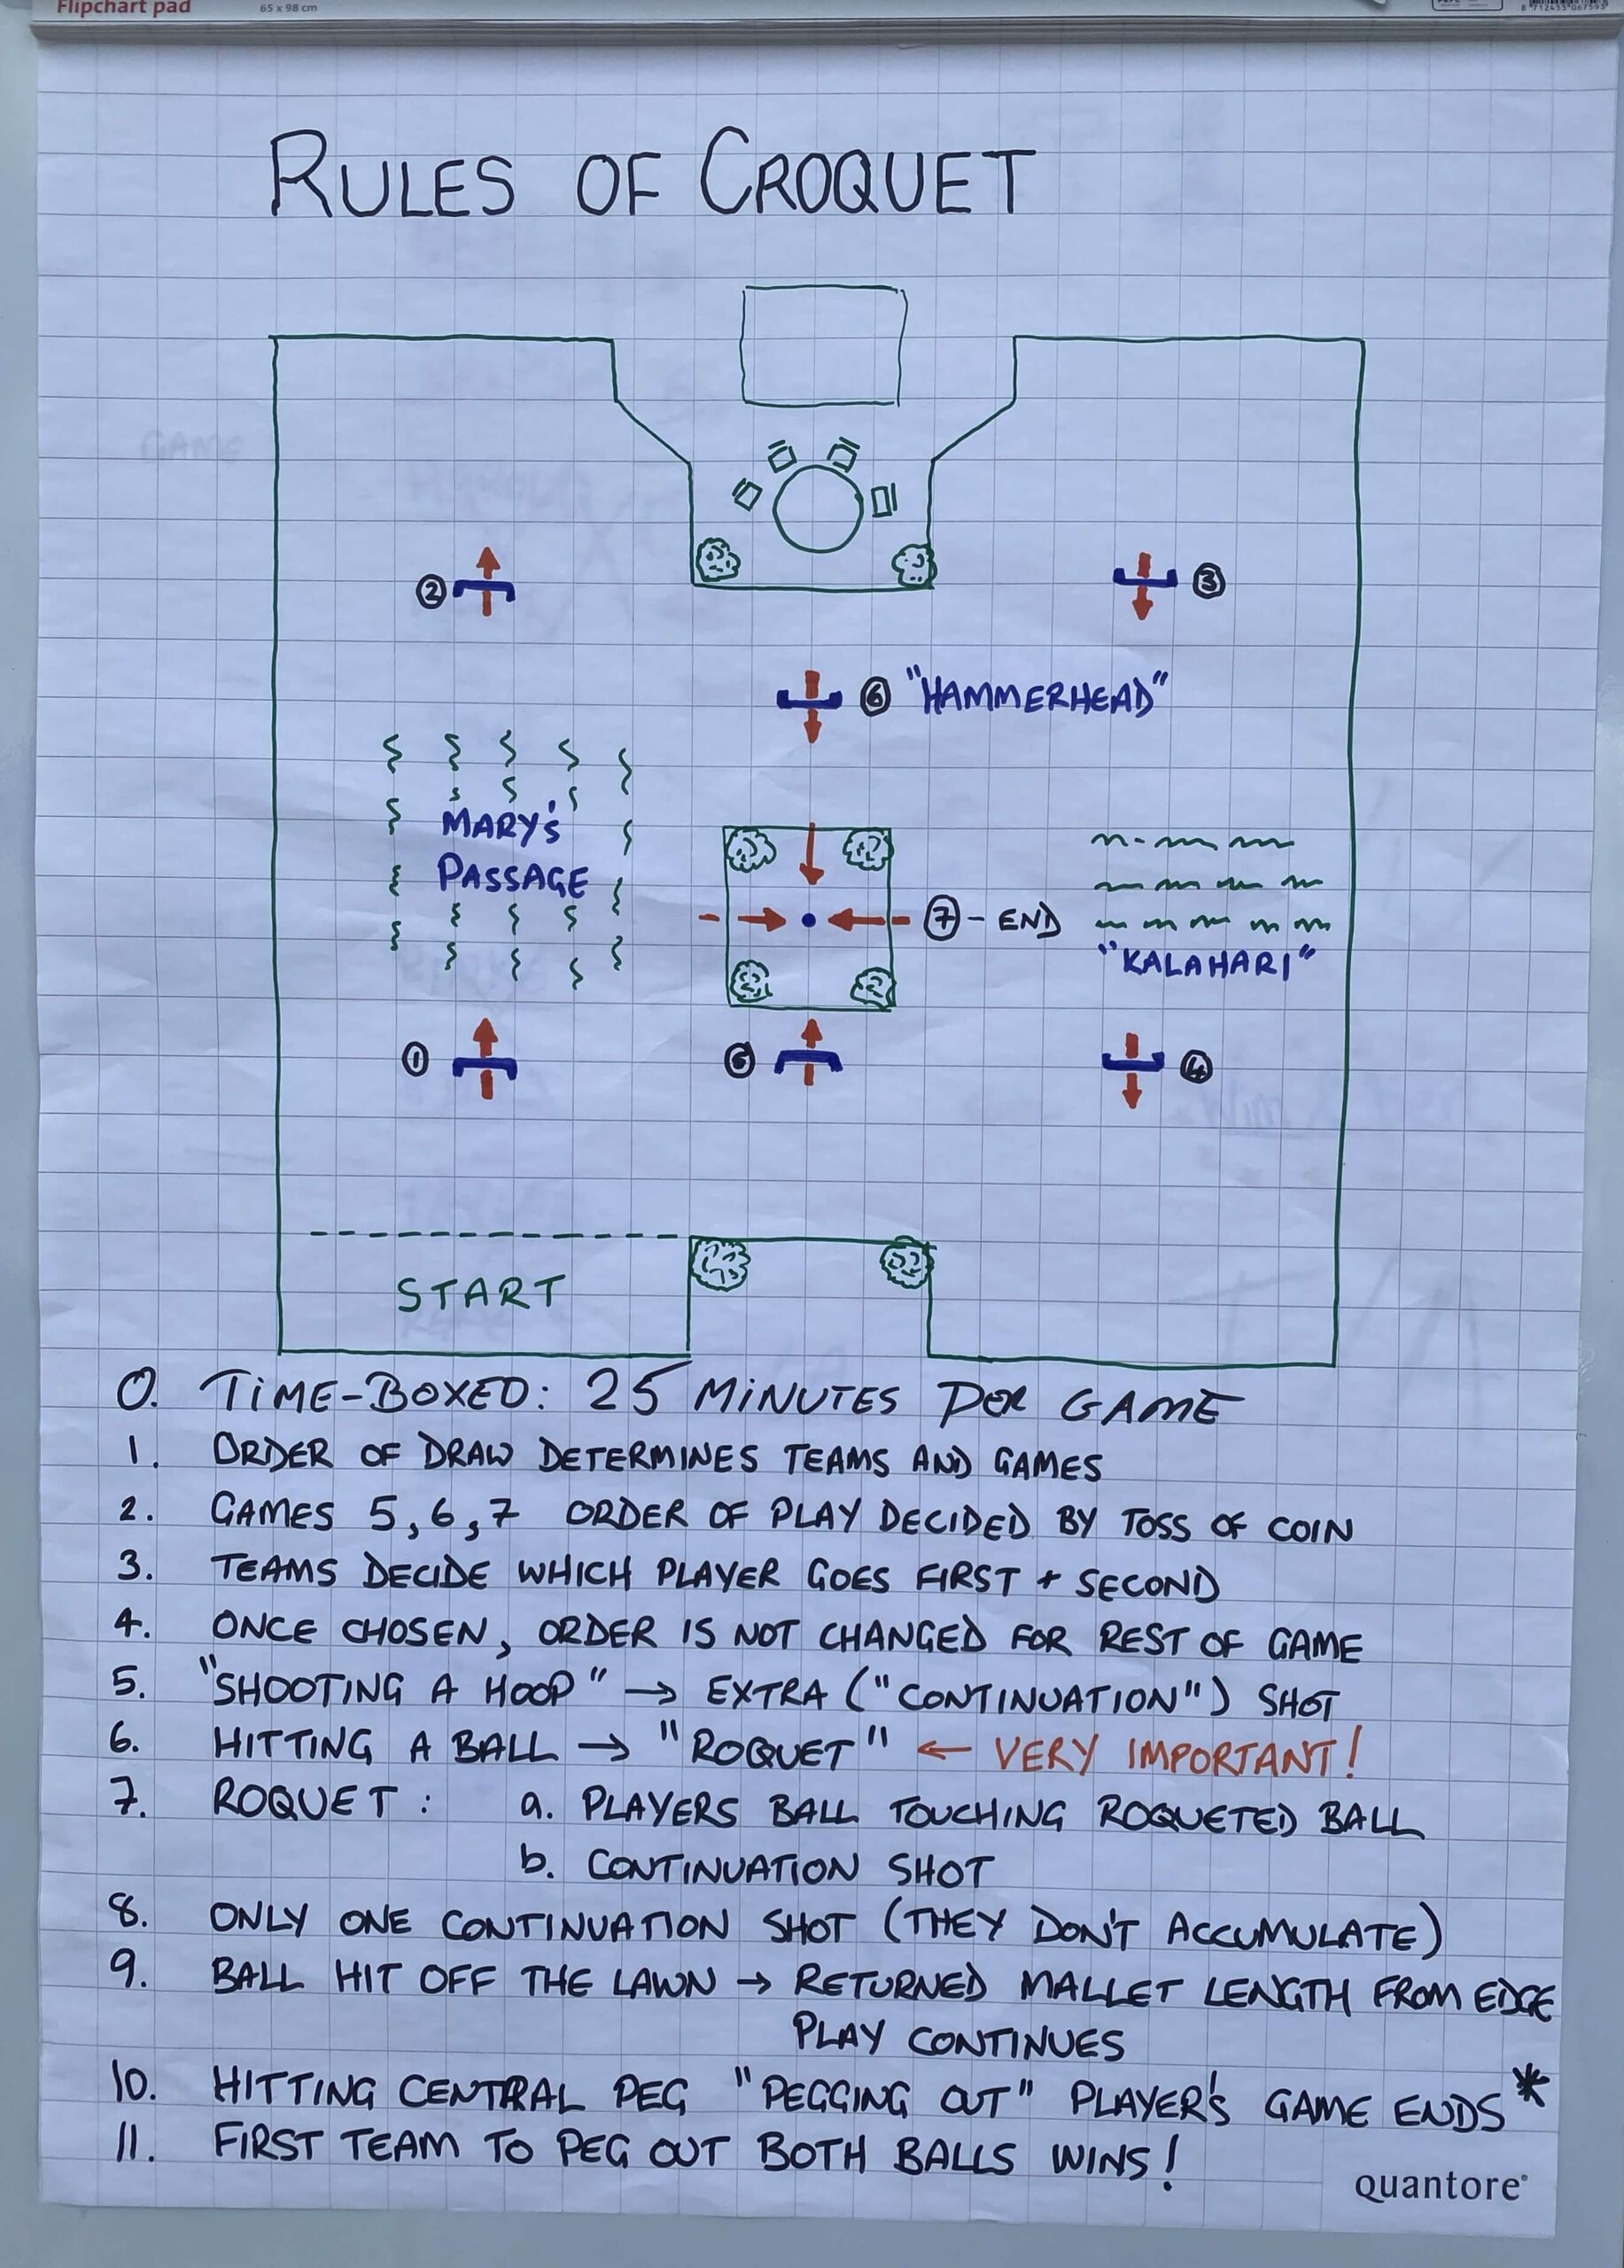 Flipchart pad 65 x 98 cm
8 712453 067595
RULES OF CROQUET
GAME
② ③
⑥ "HAMMERHEAD"
MARY'S
PASSAGE
⑦ - END
"KALAHARI"
① ⑤ ④
START
0. TIME-BOXED: 25 MINUTES PER GAME
1. ORDER OF DRAW DETERMINES TEAMS AND GAMES
2. GAMES 5, 6, 7 ORDER OF PLAY DECIDED BY TOSS OF COIN
3. TEAMS DECIDE WHICH PLAYER GOES FIRST + SECOND
4. ONCE CHOSEN, ORDER IS NOT CHANGED FOR REST OF GAME
5. "SHOOTING A HOOP" → EXTRA ("CONTINUATION") SHOT
6. HITTING A BALL → "ROQUET" ← VERY IMPORTANT!
7. ROQUET: a. PLAYERS BALL TOUCHING ROQUETED BALL
b. CONTINUATION SHOT
8. ONLY ONE CONTINUATION SHOT (THEY DON'T ACCUMULATE)
9. BALL HIT OFF THE LAWN → RETURNED MALLET LENGTH FROM EDGE
PLAY CONTINUES
10. HITTING CENTRAL PEG "PEGGING OUT" PLAYER'S GAME ENDS*
11. FIRST TEAM TO PEG OUT BOTH BALLS WINS!
quantore®